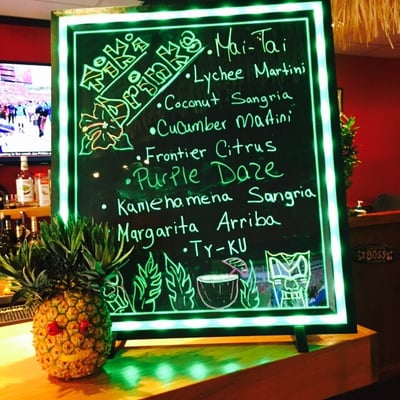 Tiki
Drinks
• Mai-Tai
• Lychee Martini
• Coconut Sangria
• Cucumber Martini
• Frontier Citrus
• Purple Daze
• Kamehamena Sangria
Margarita Arriba
• TY-KU
BOSS